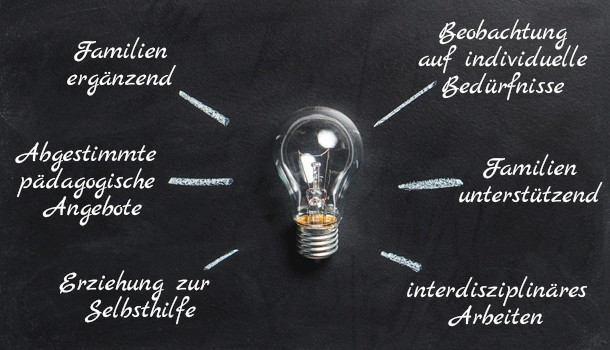 Familien
ergänzend
Abgestimmte
pädagogische
Angebote
Erziehung zur
Selbsthilfe
Beobachtung
auf individuelle
Bedürfnisse
Familien
unterstützend
interdisziplinäres
Arbeiten